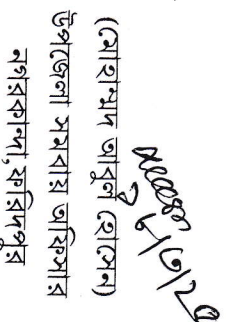 ৮/৩/২০
(মোহাম্মদ আবুল হোসেন)
উপজেলা সমবায় অফিসার
নগরকান্দা, ফরিদপুর